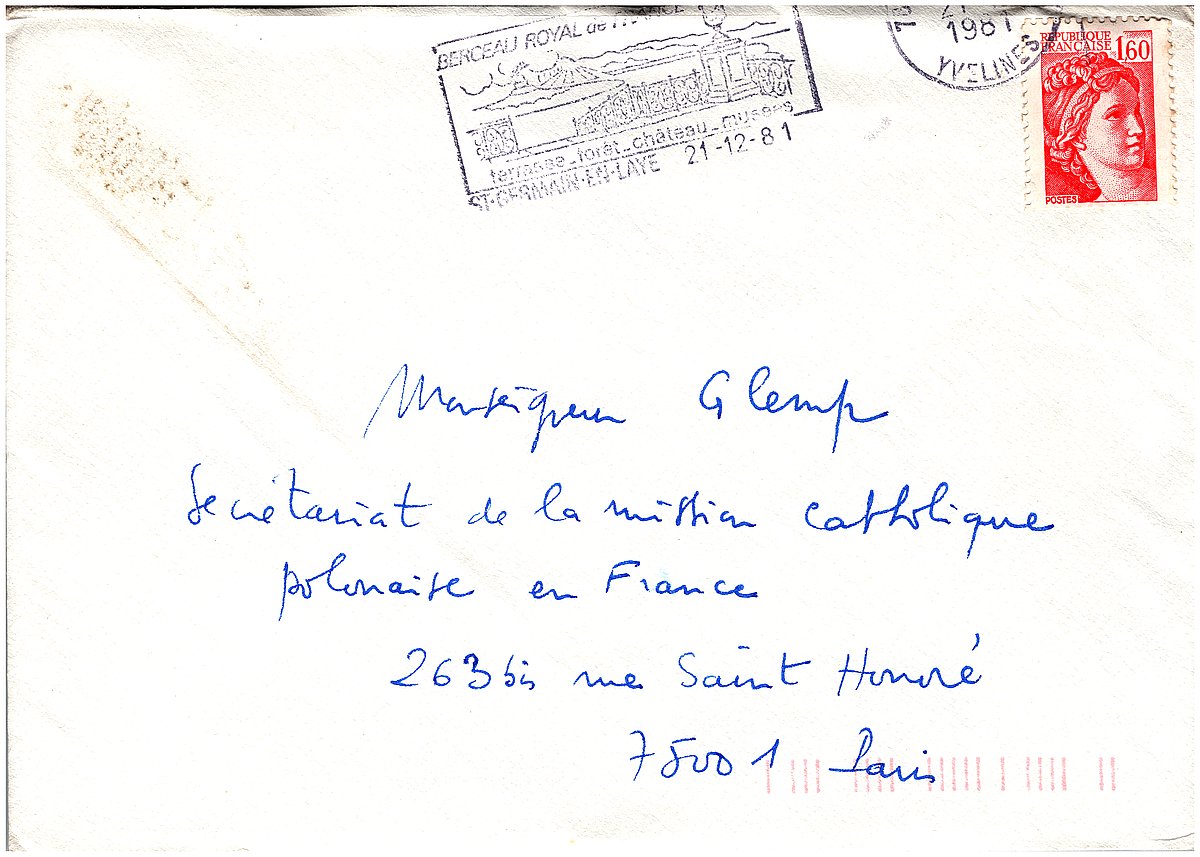 BERCEAU ROYAL de FRANCE
terrasse_forêt_château_musées
ST-GERMAIN-EN-LAYE 21-12-81
21
1981
YVELINES
REPUBLIQUE
FRANÇAISE 1,60
POSTES
Monseigneur Glemp
Secrétariat de la mission catholique
polonaise en France
263 bis rue Saint Honoré
75001 Paris